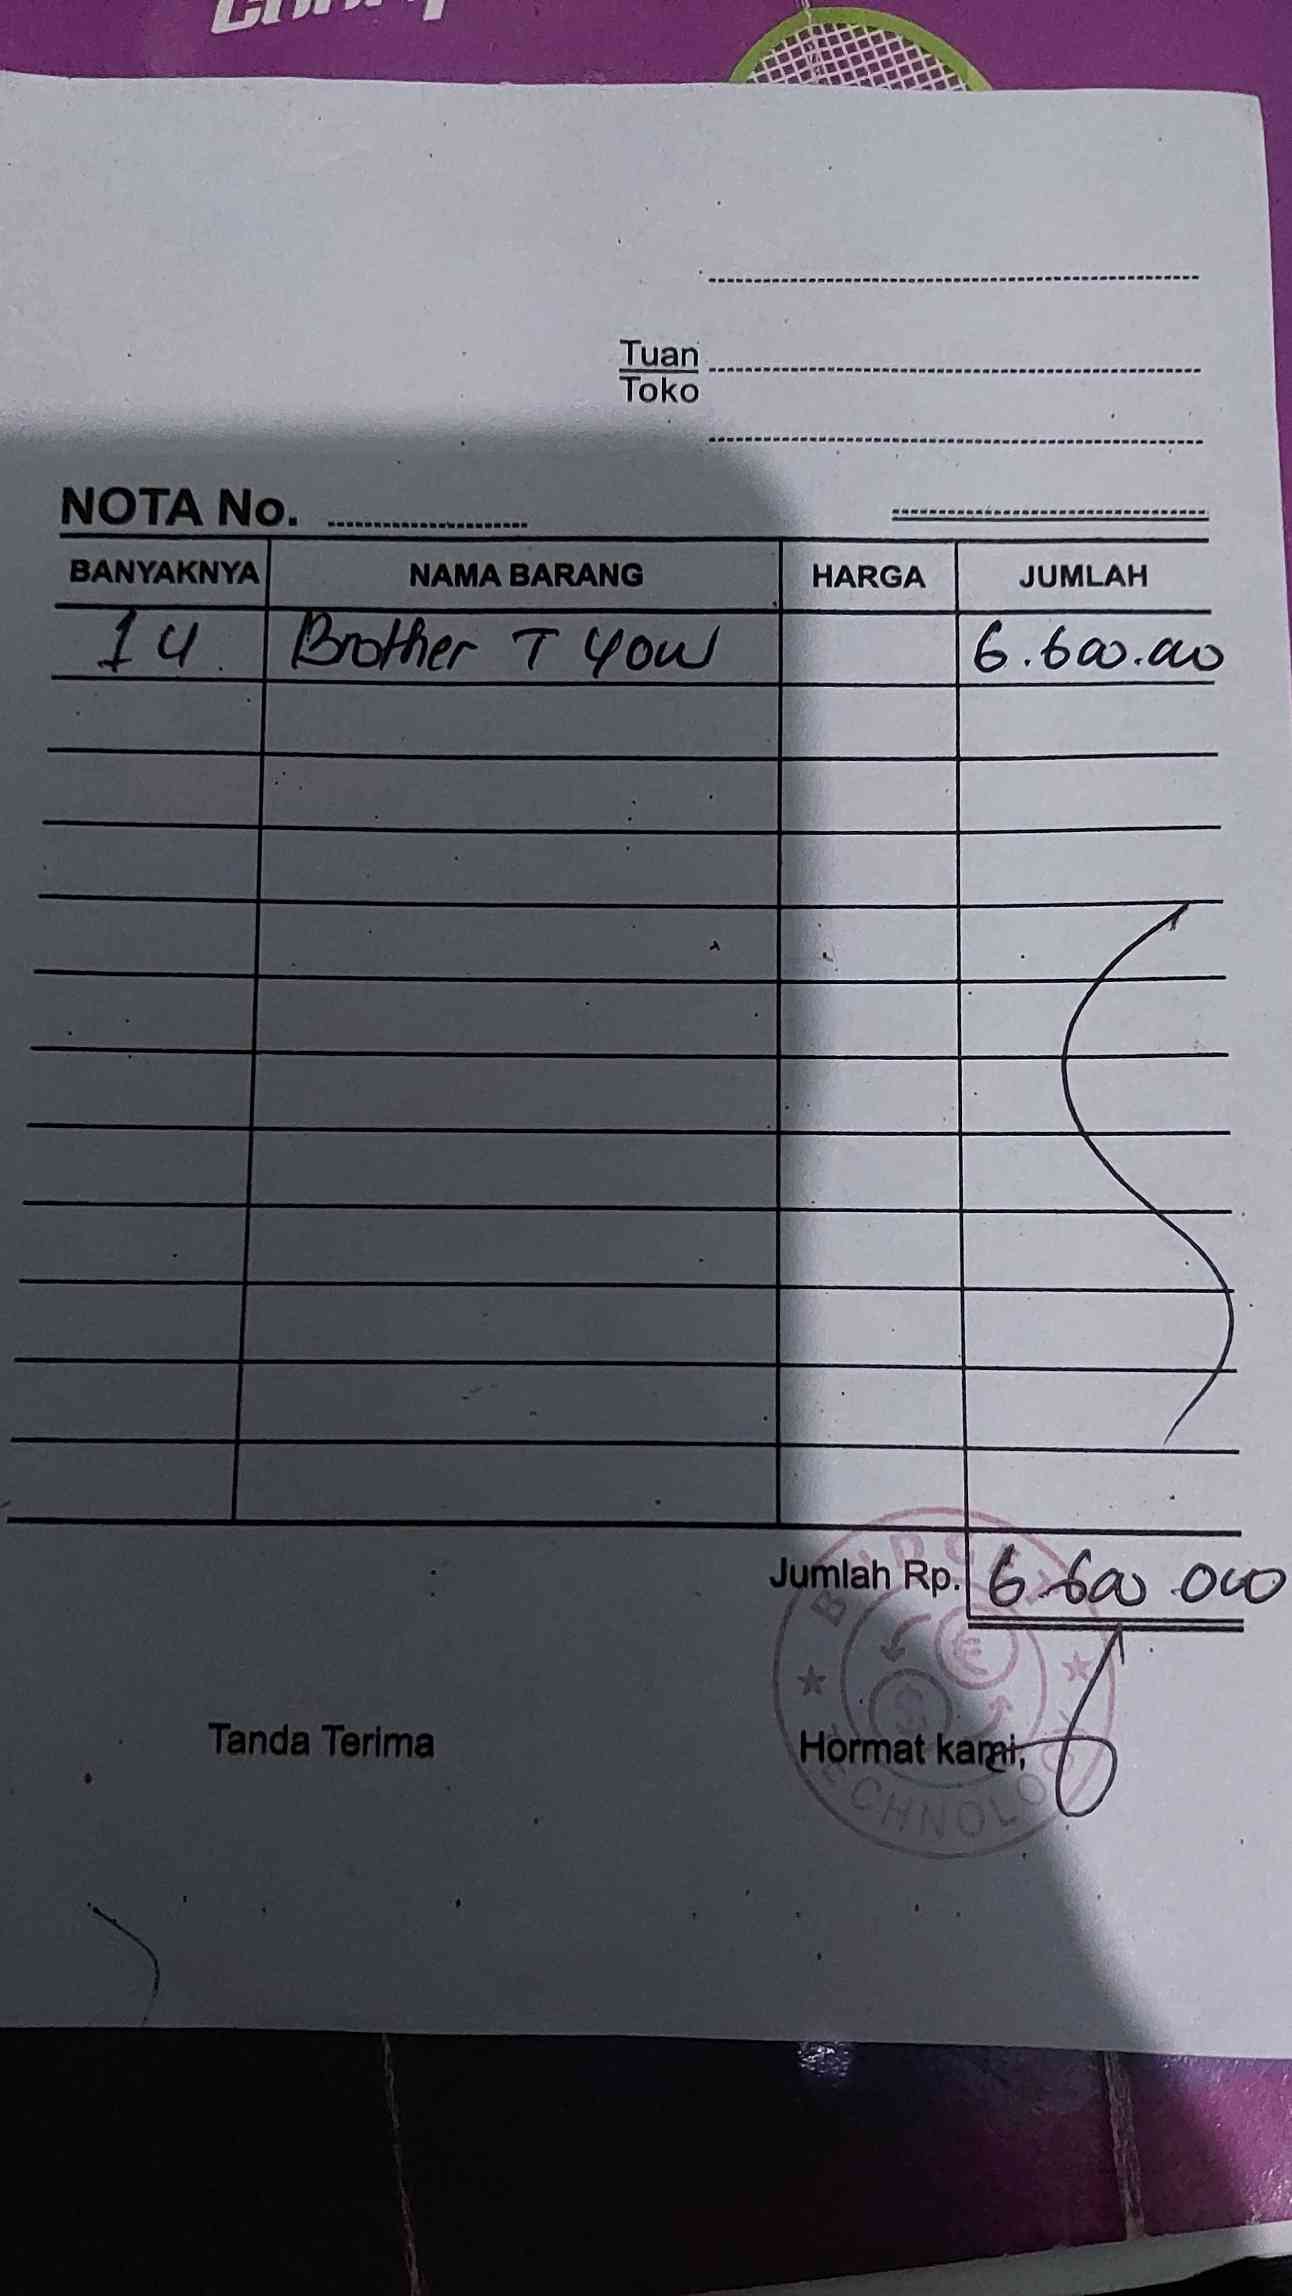 Tuan
Toko
NOTA No.
BANYAKNYA NAMA BARANG HARGA JUMLAH
1 U. Brother T 4000 6.600.000
Jumlah Rp. 6.600.000
Tanda Terima Hormat kami,